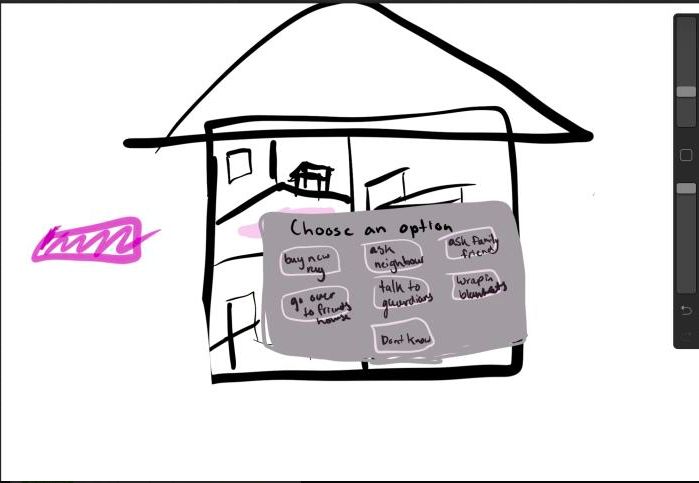 Choose an option
buy new
rug
ask
neighbour
ask family
friend
go over
to friends
house
talk to
guardians
wrap in
blankets
Dont know